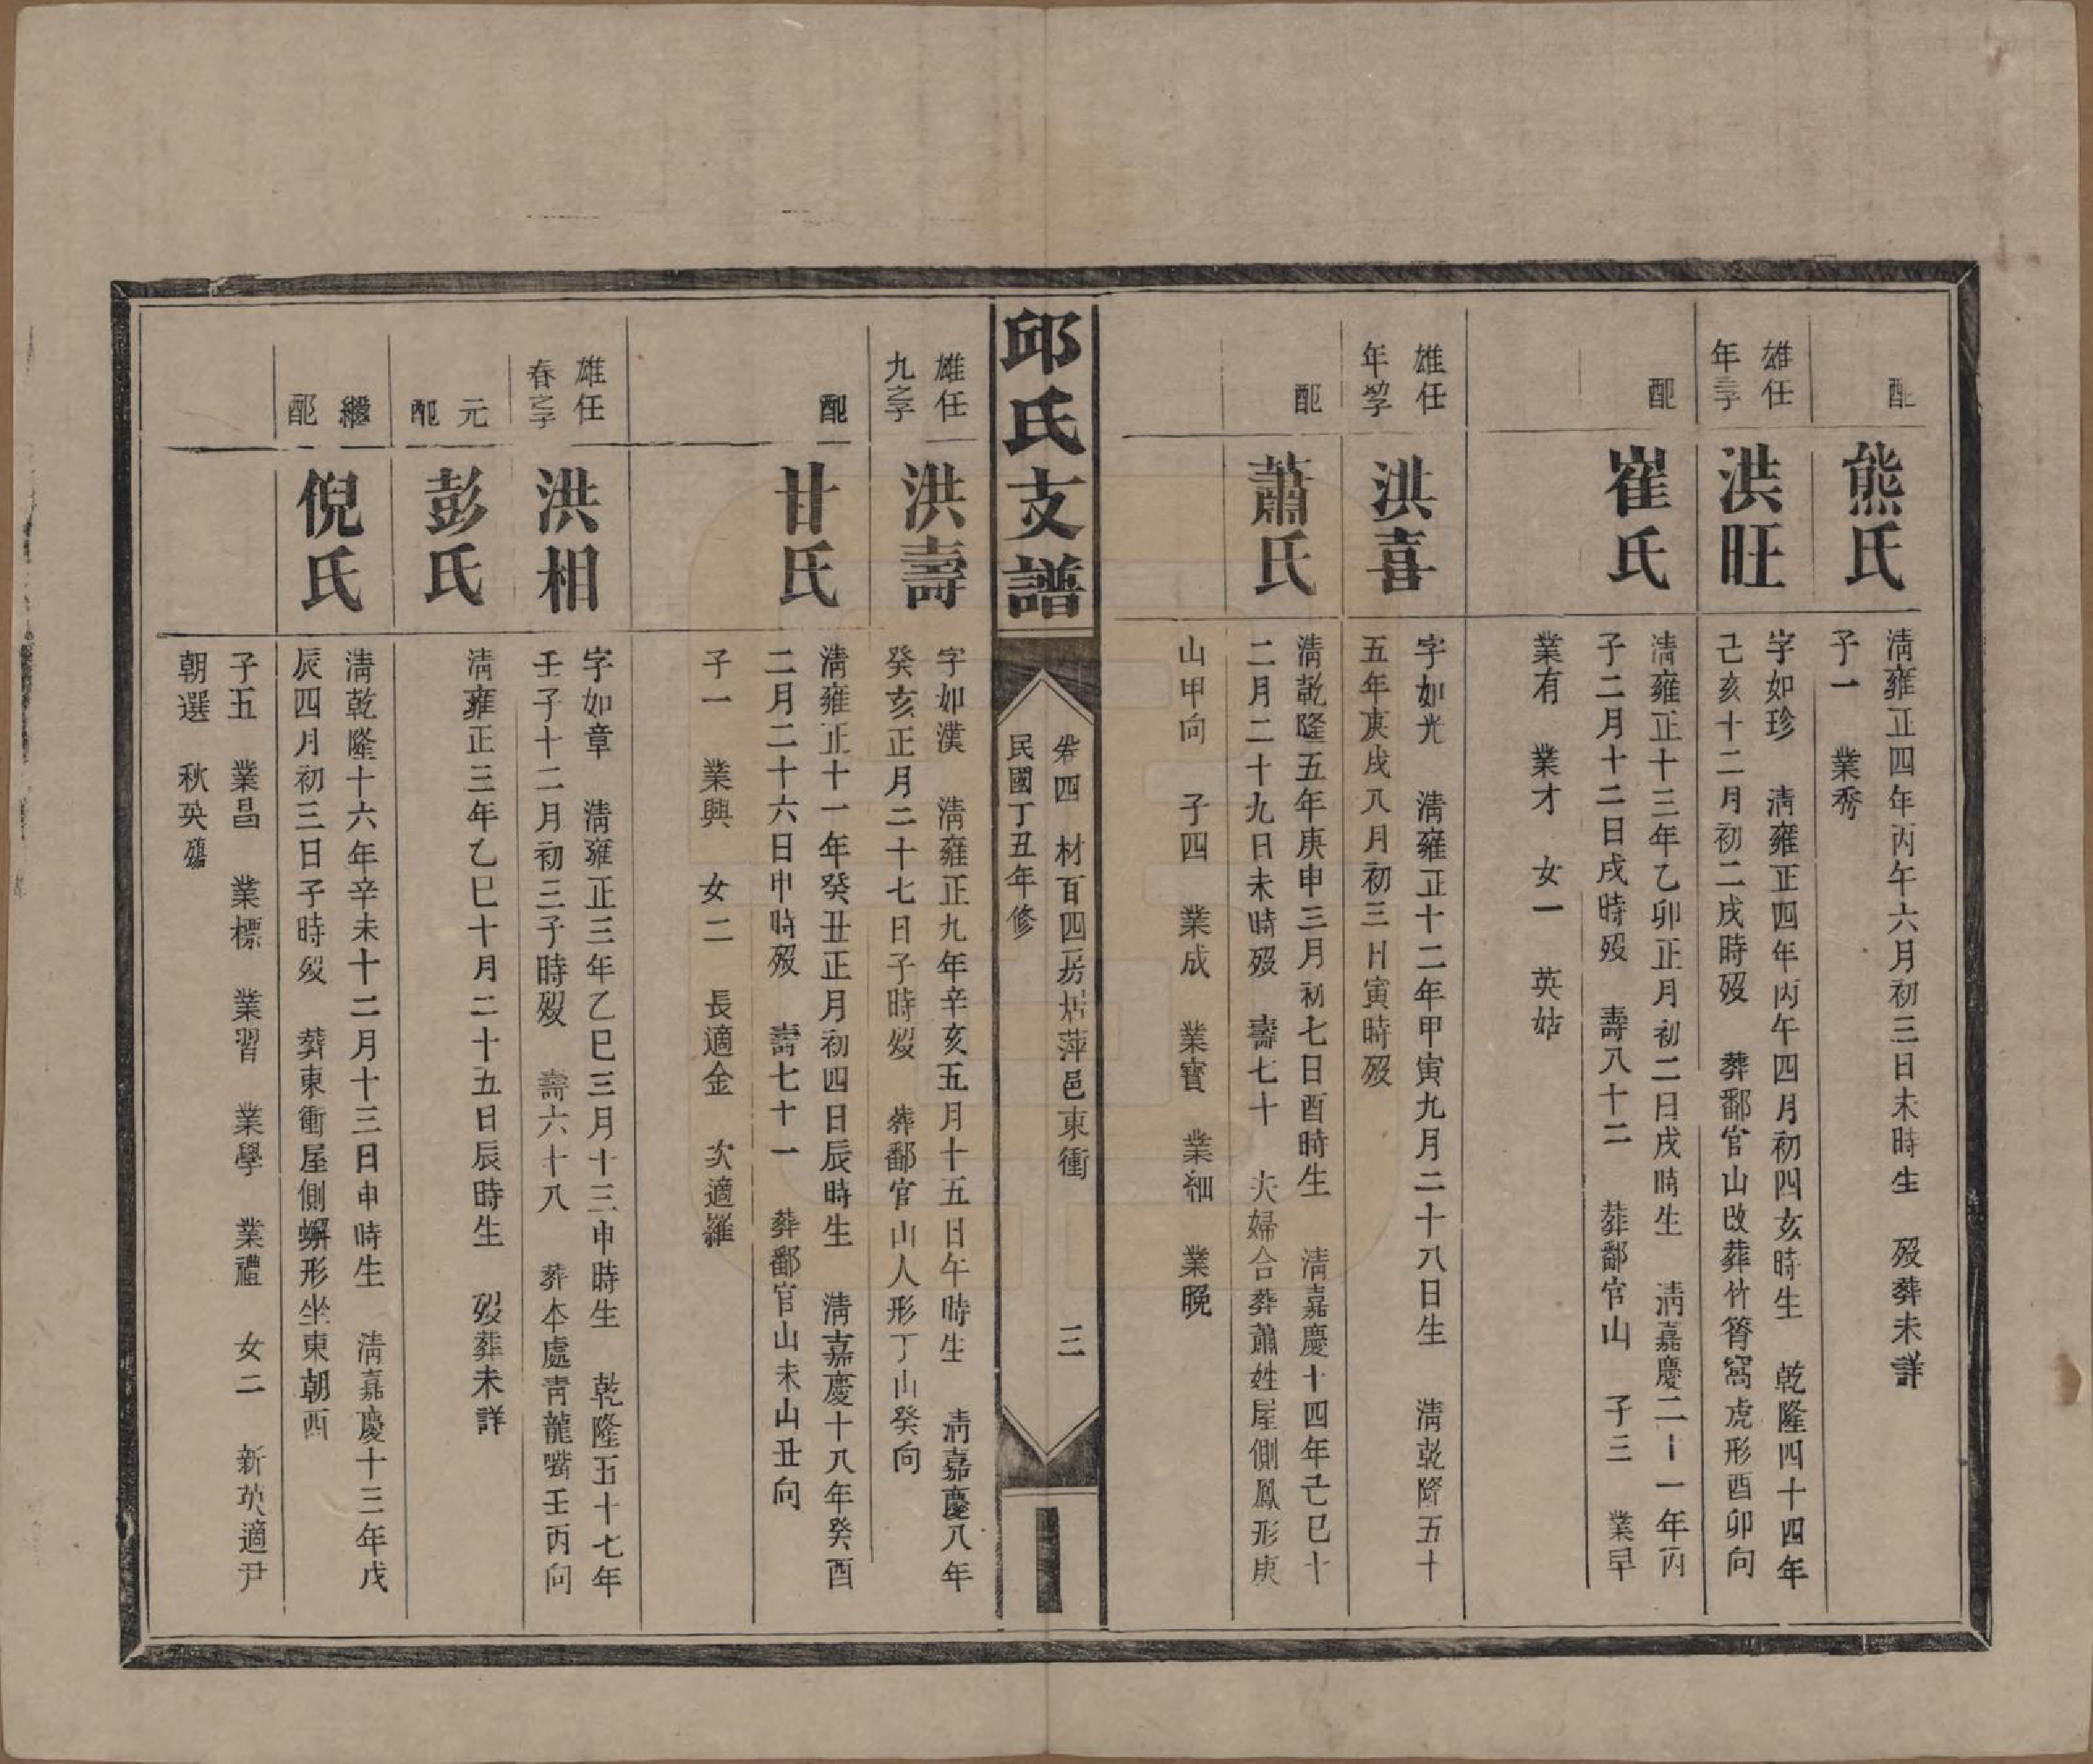 配
熊氏
淸雍正四年丙午六月初三日未時生 歿葬未詳
子一 業秀
雄任
年三子
洪旺
字如珍 淸雍正四年丙午四月初四亥時生 乾隆四十四年
己亥十二月初二戌時歿 葬鄱官山改葬竹筲窩虎形酉卯向
配
崔氏
淸雍正十三年乙卯正月初二日戌時生 淸嘉慶二十一年丙
子二月十二日戌時歿 壽八十二 葬鄱官山 子三 業早
業有 業才 女一 英姑
雄任
年四子
洪喜
字如光 淸雍正十二年甲寅九月二十八日生 淸乾隆五十
五年庚戌八月初三日寅時歿
配
蕭氏
淸乾隆五年庚申三月初七日酉時生 淸嘉慶十四年己巳十
二月二十九日未時歿 壽七十 夫婦合葬蕭姓屋側鳳形庚
山甲向 子四 業成 業寶 業細 業晚
邱氏支譜
卷四 材百四房居萍邑東衝 三
民國丁丑年修
雄任
九之子
洪壽
字如漢 淸雍正九年辛亥五月十五日午時生 淸嘉慶八年
癸亥正月二十七日子時歿 葬鄱官山人形丁山癸向
配
甘氏
淸雍正十一年癸丑正月初四日辰時生 淸嘉慶十八年癸酉
二月二十六日申時歿 壽七十一 葬鄱官山未山丑向
子一 業興 女二 長適金 次適羅
雄任
春之子
洪相
字如章 淸雍正三年乙巳三月十三申時生 乾隆五十七年
壬子十二月初三子時歿 壽六十八 葬本處靑龍嘴壬丙向
元
配
彭氏
淸雍正三年乙巳十月二十五日辰時生 歿葬未詳
繼
配
倪氏
淸乾隆十六年辛未十二月十三日申時生 淸嘉慶十三年戊
辰四月初三日子時歿 葬東衝屋側蠏形坐東朝西
子五 業昌 業標 業習 業學 業禮 女二 新英適尹
朝選 秋英殤